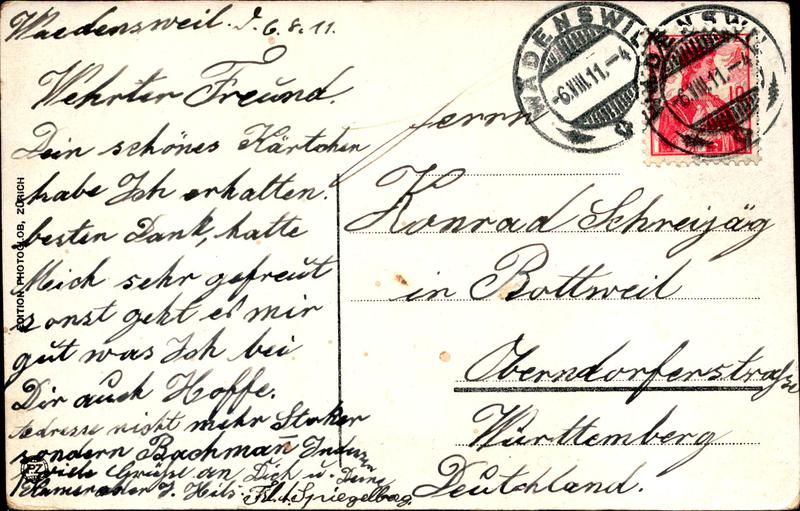 Waedensweil. d. 6.8.11.
Wehrter Freund.
Dein schönes Kärtchen
habe Ich erhalten.
besten Dank, hatte
Mich sehr gefreut
sonst geht es mir
gut was Ich bei
Dir auch Hoffe.
Adresse nicht mehr Stoker
sondern Bachman̄
viele Grüße an Dich u. Deine
Kameraden J. Spiegelberg.
EDITION PHOTOGLOB, ZÜRICH
PZ
WÄDENSWIL
-6.VIII.11.-4
WÄDENSWIL
-6.VIII.11.-4
10
Herrn
Konrad Schreijäg
in Rottweil
Oberndorferstraße
Württemberg
Deutchland.